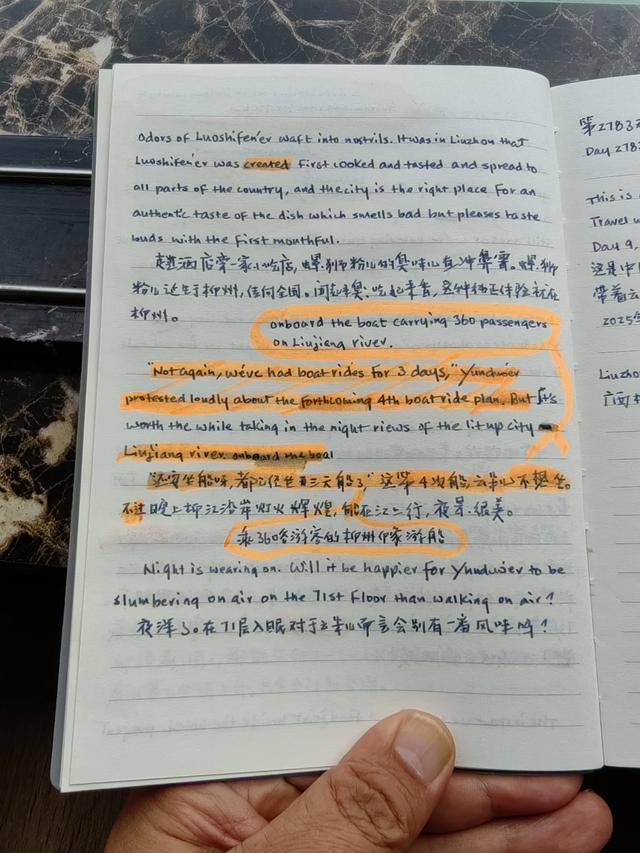 odors of Luoshifen'er waft into nostrils. It was in Liuzhou that
Luoshifen'er was created first cooked and tasted and spread to
all parts of the country, and the city is the right place for an
authentic taste of the dish which smells bad but pleases taste
buds with the first mouthful.
走进酒店旁一家小吃店，螺蛳粉儿的臭味儿直冲鼻
粉儿诞生于柳州，传向全国。闻起来臭，吃起来香，
柳州。
onboard the boat carrying 360 passengers
on Liujiang river.
"Not again, we've had boat rides for 3 days," Yunduo'er
protested loudly about the forthcoming 4th boat ride plan. But it's
worth the while taking in the night views of the lit up city
Liujiang river. onboard the boat
"还要坐船呀，都已经坐了三天船了" 这第4次船云朵儿不想坐。
不过晚上柳江沿岸灯火辉煌，船在江上行，夜景很美。
乘360名游客的柳州印象游船
Night is wearing on. Will it be happier for Yunduo'er to be
slumbering on air on the 71st floor than walking on air?
夜深了。在71层入眠对于云朵儿而言会别有一番风味吗？
第2783天
Day 278
This is
Travel
Day 9,
这是中
带着云
2025年
Liuzho
广西